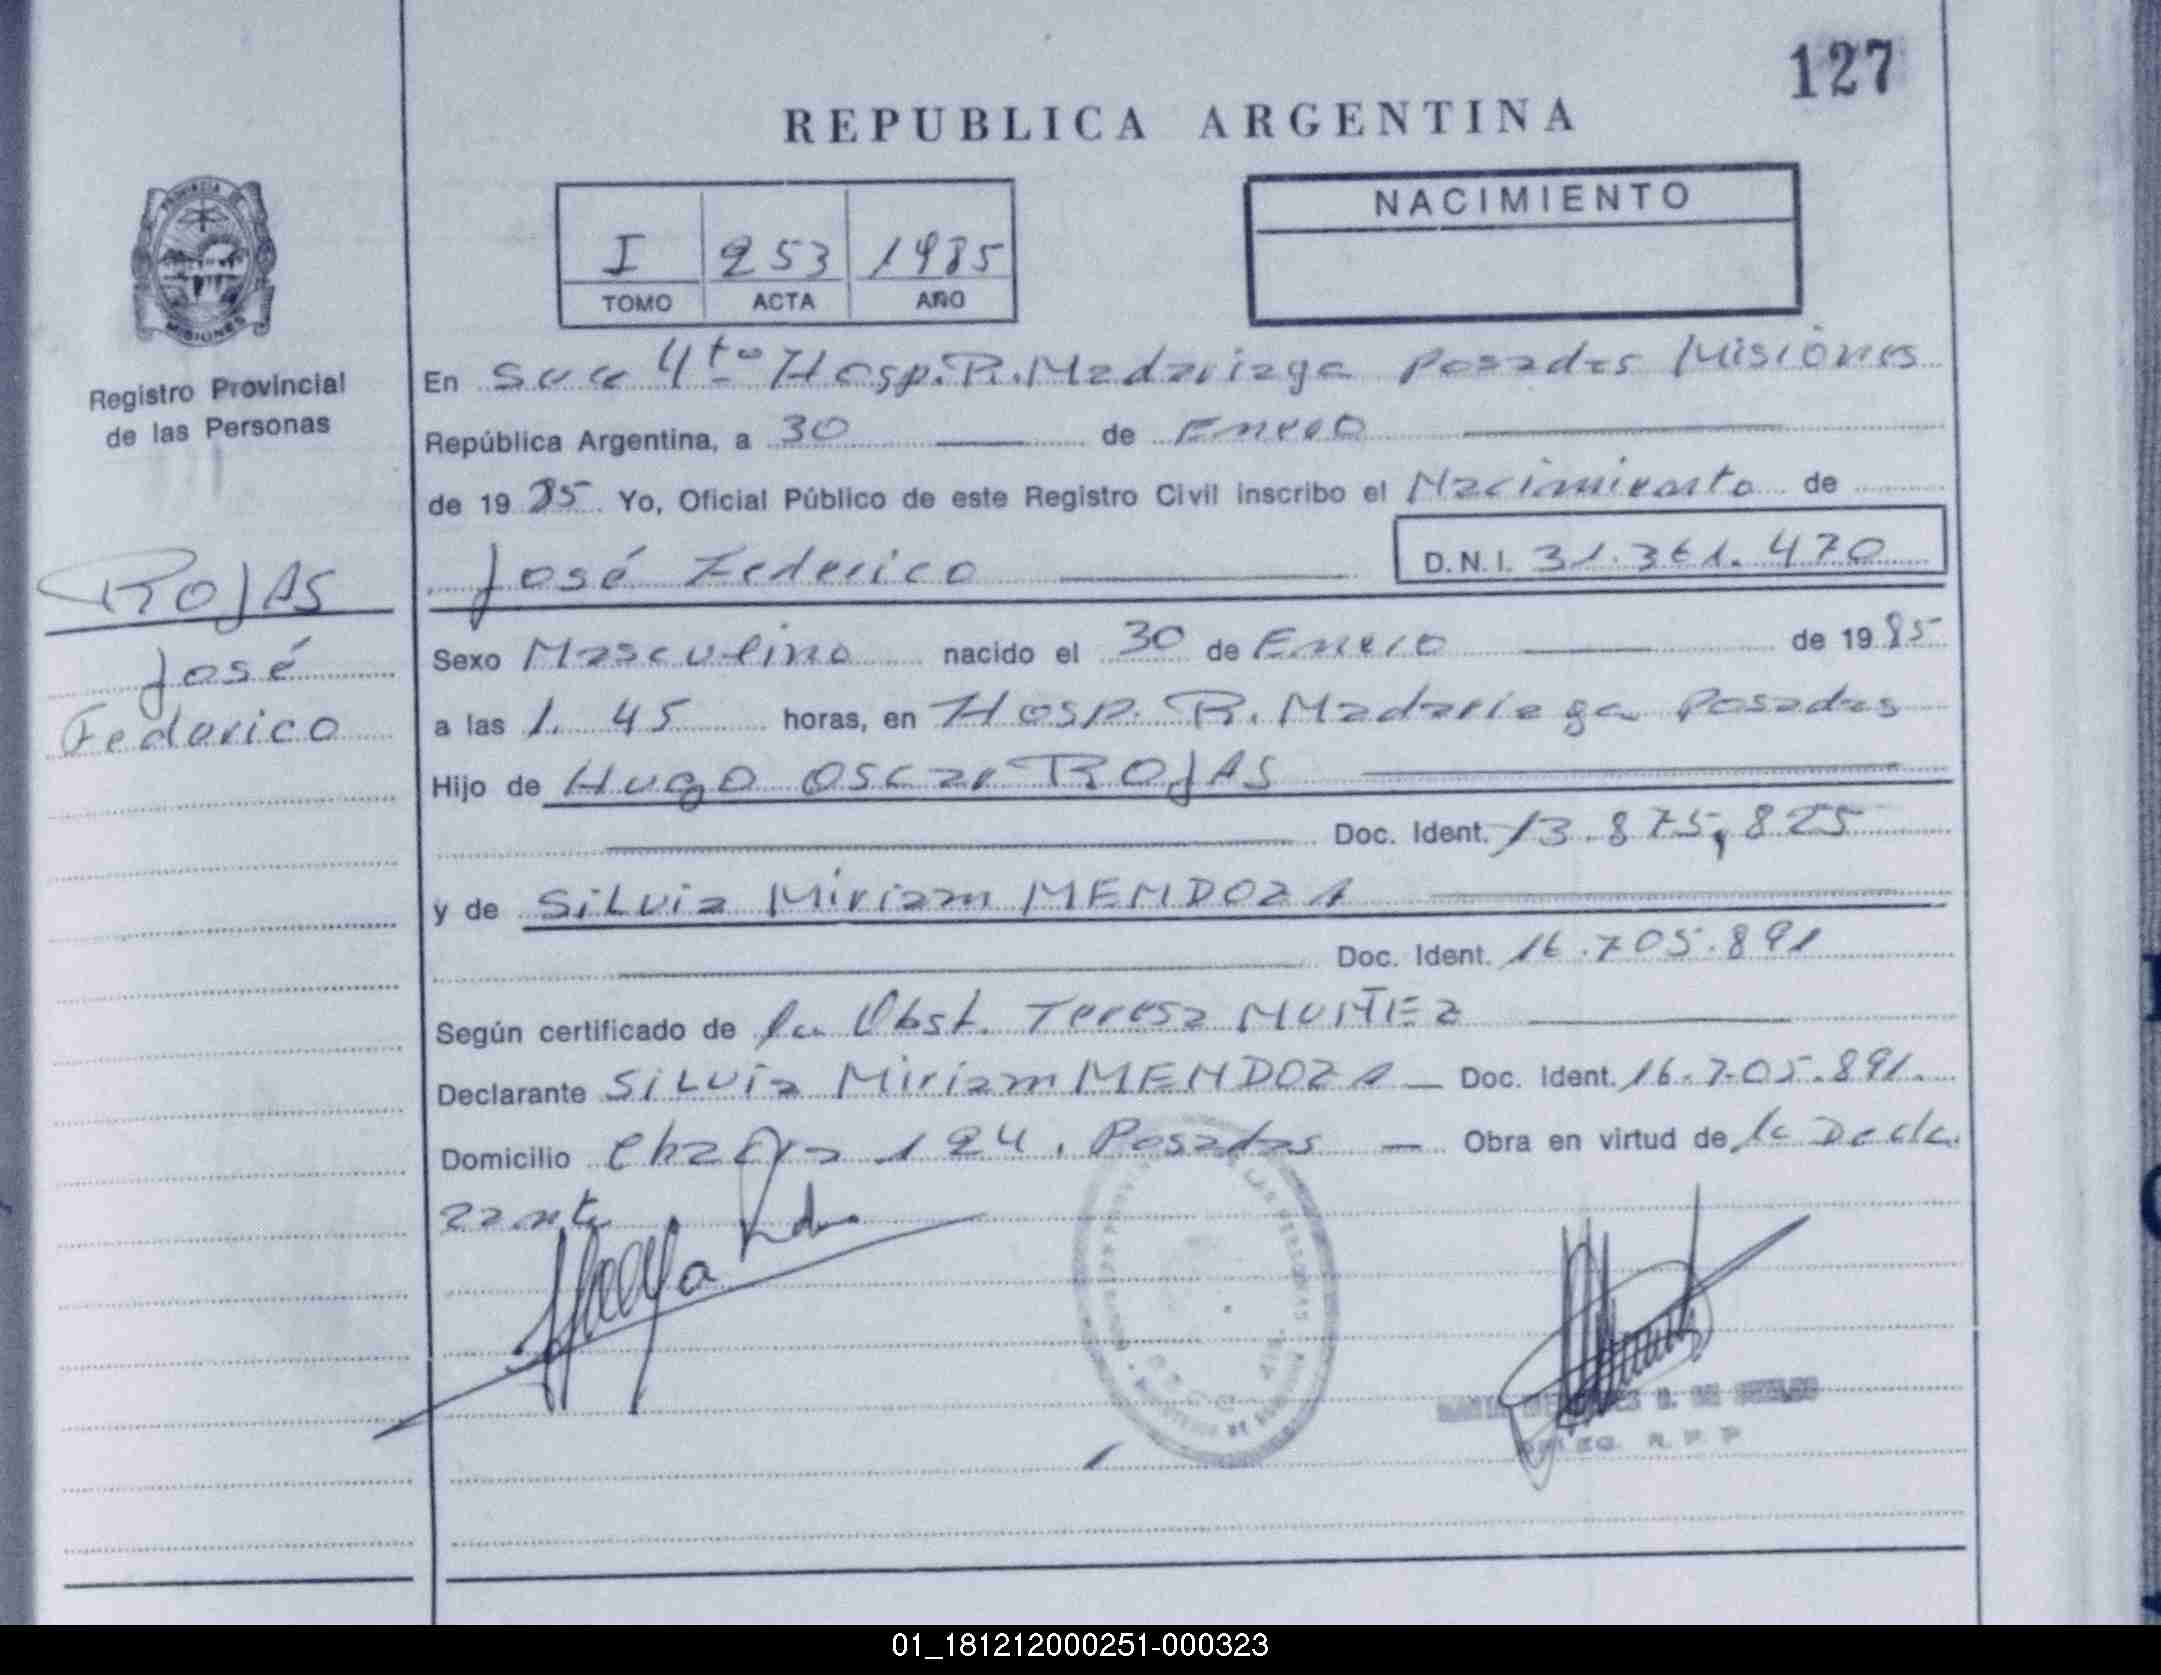 127
REPUBLICA ARGENTINA
PROVINCIA
MISIONES
Registro Provincial
de las Personas
I 253 1985
TOMO ACTA AÑO
NACIMIENTO
En 4to Hosp. R. Madariaga Posadas Misiones
República Argentina, a 30 de Enero
de 1985 Yo, Oficial Público de este Registro Civil inscribo el Nacimiento de
José Federico D.N.I. 31.361.470
ROJAS
José
Federico
Sexo Masculino nacido el 30 de Enero de 1985
a las 1.45 horas, en Hosp. R. Madariaga Posadas
Hijo de Hugo Oscar ROJAS
Doc. Ident. 13.875,825
y de Silvia Miriam MENDOZA
Doc. Ident. 16.705.891
Según certificado de la Obst. Teresa MUÑEZ
Declarante Silvia Miriam MENDOZA Doc. Ident. 16.705.891.
Domicilio 124, Posadas Obra en virtud de la Decla
rante
R. P. P.
01_181212000251-000323